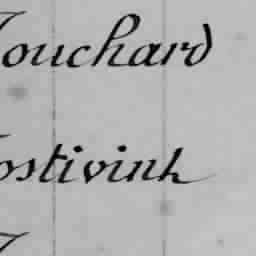 Touchard
Tostivinh